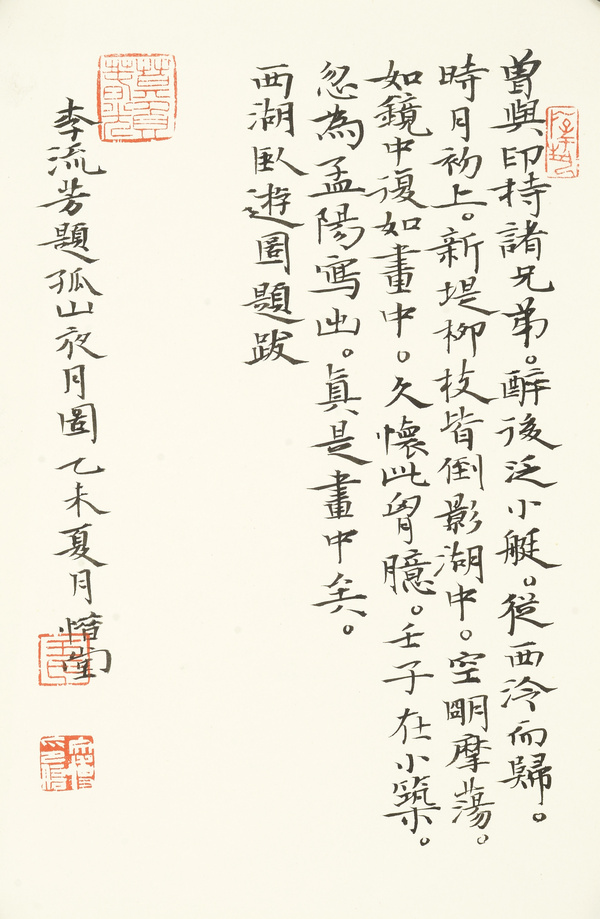 曾與印持諸兄弟。醉後泛小艇。從西泠而歸。
時月初上。新堤柳枝皆倒影湖中。空明摩蕩。
如鏡中復如畫中。久懷此胷臆。壬子在小築。
忽為孟陽寫出。真是畫中矣。
西湖臥遊圖題跋
李流芳題孤山夜月圖乙未夏月惜堂